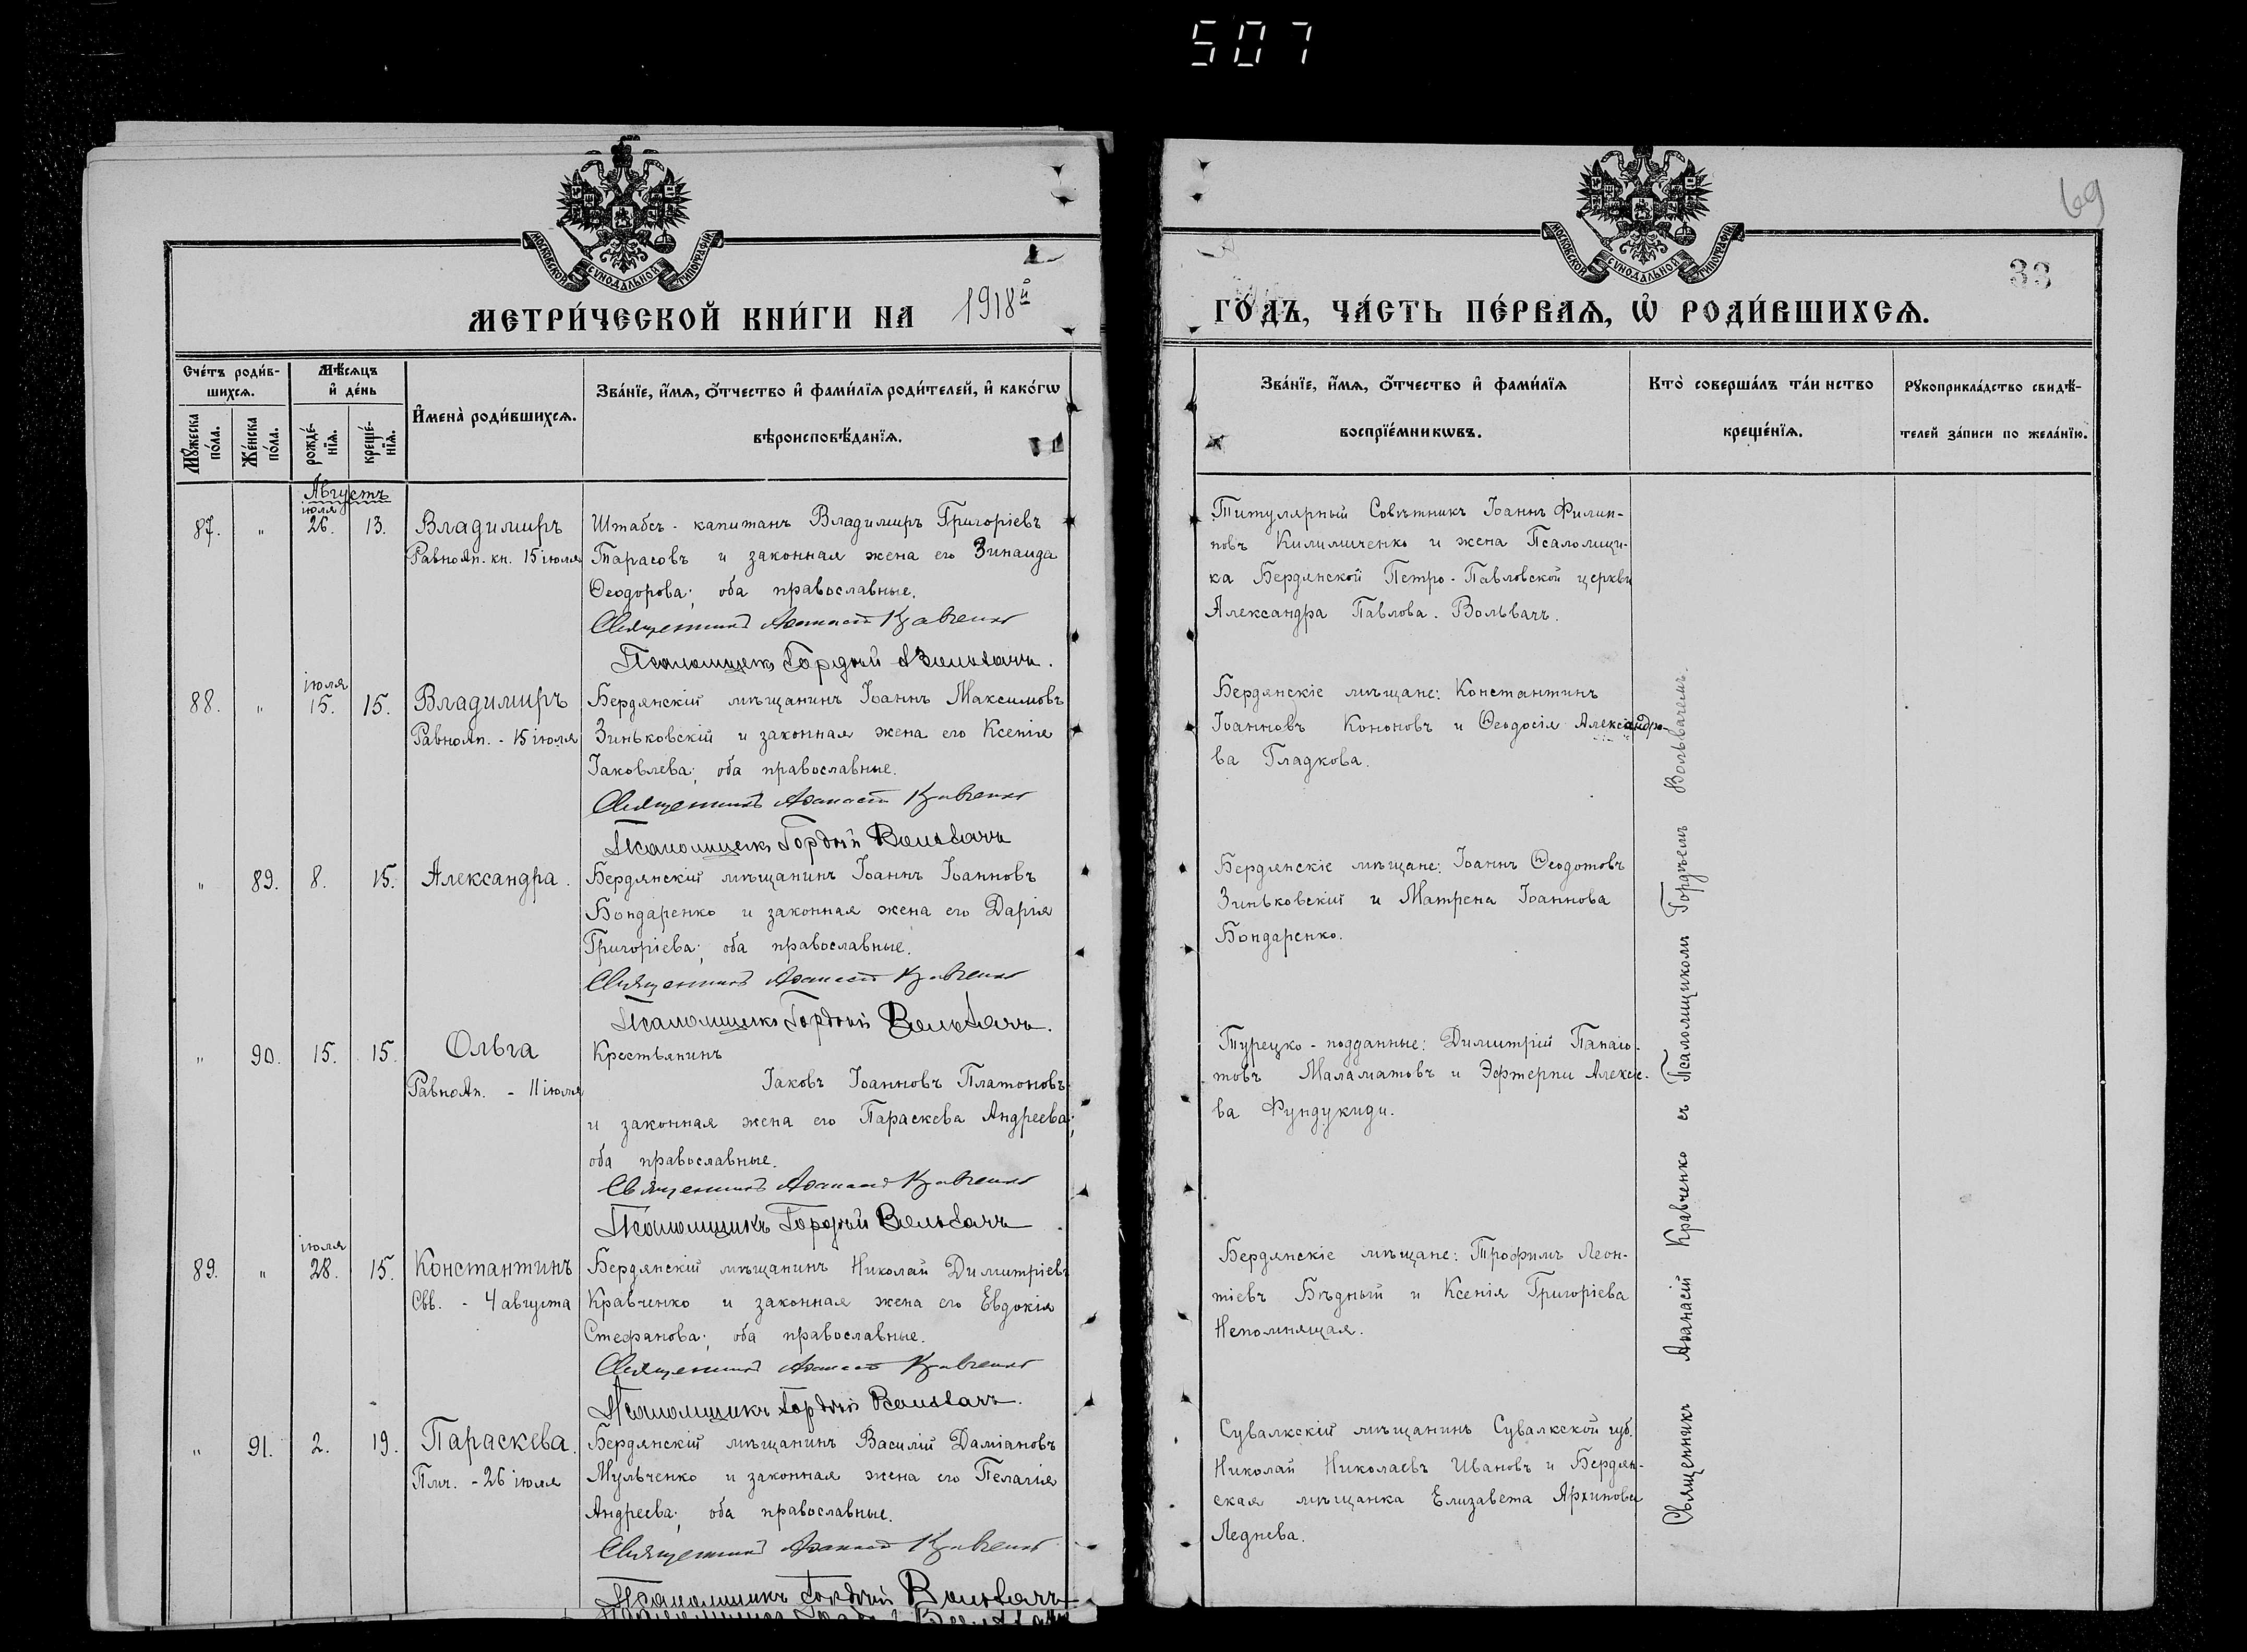 507
МОСКОВСКОЙ СѴНОДАЛЬНОЙ ТИПОГРАФІИ
МЕТРИ́ЧЕСКОЙ КНИ́ГИ НА 1918й
Сче́тъ роди́в-
шихсѧ.
Мꙋ́жеска
по́ла.
Же́нска
по́ла.
Мѣ́сяцъ
и҆ де́нь
рожде́-
нїѧ.
креще́-
нїѧ.
И҆мена̀ роди́вшихсѧ.
Зва́нїе, и҆́мѧ, ѻ҆́тчество и҆ фами́лїѧ роди́телей, и҆ како́гѡ
вѣроисповѣ́данїѧ.
Августъ
87. " іюля 26. 13. Владимиръ
РавноАп. кн. 15 іюля
Штабсъ-капитанъ Владимиръ Григоріевъ
Тарасовъ и законная жена его Зинаида
Ѳеодорова; оба православные.
Священникъ Аѳанасій Кравченко
Псаломщикъ Гордій Вольвачъ.
88. " іюля 15. 15. Владимиръ
РавноАп. - 15 іюля
Бердянскій мѣщанинъ Іоаннъ Максимовъ
Зиньковскій и законная жена его Ксенія
Іаковлева; оба православные.
Священникъ Аѳанасій Кравченко
Псаломщикъ Гордій Вольвачъ
" 89. 8. 15. Александра.
Бердянскій мѣщанинъ Іоаннъ Іоанновъ
Бондаренко и законная жена его Дарія
Григоріева; оба православные.
Священникъ Аѳанасій Кравченко
Псаломщикъ Гордій Вольвачъ.
" 90. 15. 15. Ольга
РавноАп. - 11 іюля
Крестьянинъ
Іаковъ Іоанновъ Платоновъ
и законная жена его Параскева Андреева;
оба православные.
Священникъ Аѳанасій Кравченко
Псаломщикъ Гордій Вольвачъ
89. " іюля 28. 15. Константинъ
Свв. - 4 августа
Бердянскій мѣщанинъ Николай Димитріевъ
Кравченко и законная жена его Евдокія
Стефанова; оба православные.
Священникъ Аѳанасій Кравченко
Псаломщикъ Гордій Вольвачъ.
" 91. 2. 19. Параскева.
Плч. - 26 іюля
Бердянскій мѣщанинъ Василій Даміановъ
Мульченко и законная жена его Пелагія
Андреева; оба православные.
Священникъ Аѳанасій Кравченко
Псаломщикъ Гордій Вольвачъ
69
33
МОСКОВСКОЙ СѴНОДАЛЬНОЙ ТИПОГРАФІИ
ГО́ДЪ, ЧА́СТЬ ПЕ́РВАѦ, Ѡ҆ РОДИ́ВШИХСѦ.
Зва́нїе, и҆́мѧ, ѻ҆́тчество и҆ фами́лїѧ
воспрїе́мникѡвъ.
Кто̀ соверша́лъ та́инство
креще́нїѧ.
Рꙋкоприкла́дство свидѣ́-
телей за́писи по жела́нїю.
Титулярный Совѣтникъ Іоаннъ Филип-
повъ Килимиченко и жена Псаломщи-
ка Бердянской Петро-Павловской церкви
Александра Павлова. Вольвачъ.
Бердянскіе мѣщане: Константинъ
Іоанновъ Кононовъ и Ѳеодосія Александро-
ва Гладкова.
Бердянскіе мѣщане: Іоаннъ Ѳеодотовъ
Зиньковскій и Матрена Іоаннова
Бондаренко.
Турецко-подданные: Димитрій Панаіо-
товъ Маламатовъ и Эфтерпи Алексе-
ва Фундукиди.
Бердянскіе мѣщане: Трофимъ Леон-
тіевъ Бѣдный и Ксенія Григоріева
Непомнящая.
Сувалкскій мѣщанинъ Сувалкской губ.
Николай Николаевъ Ивановъ и Бердян-
ская мѣщанка Елизавета Архипова
Леднева.
Священникъ Аѳанасій Кравченко съ Псаломщикомъ Гордѣемъ Вольвачемъ.